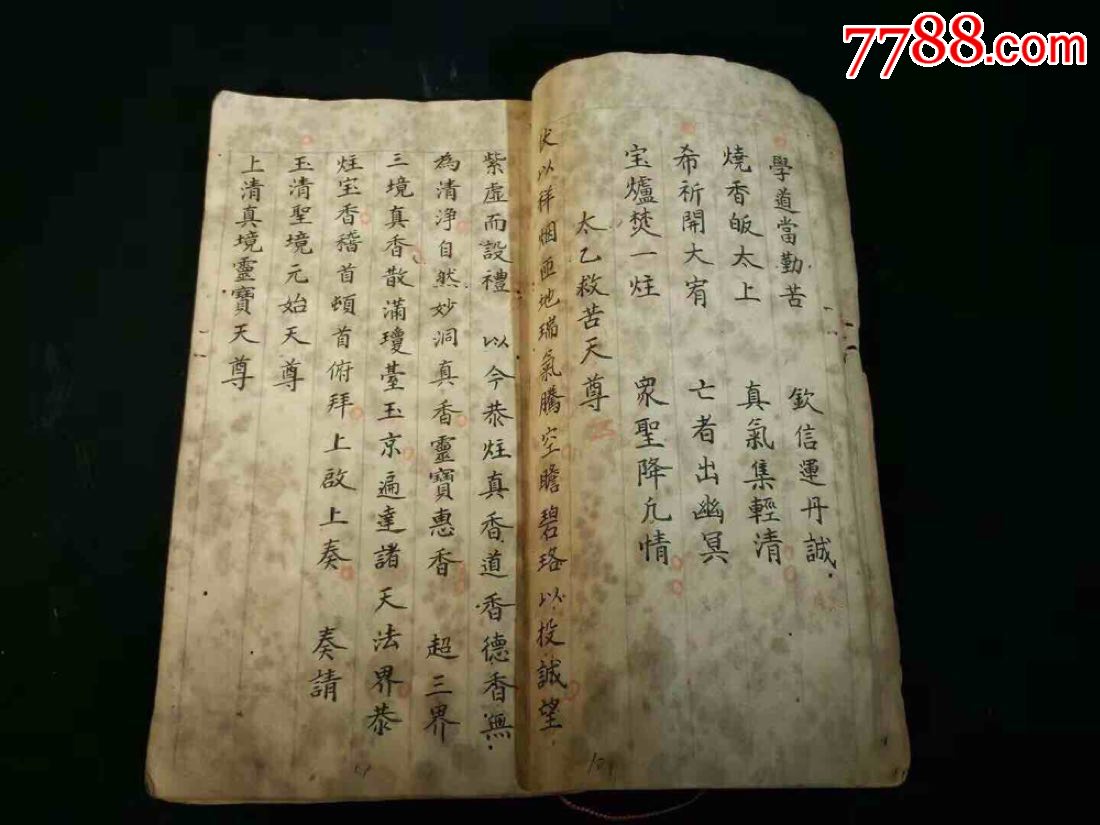 7788.com
學道當勤苦 欽信運丹誠
燒香皈太上 真氣集輕清
希祈開大宥 亡者出幽冥
宝爐焚一炷 眾聖降凢情
太乙救苦天尊
伏以祥烟匝地瑞氣騰空瞻碧珞以投誠望
紫虛而設禮 以今恭炷真香道香德香無
為清淨自然妙洞真香靈寶惠香 超三界
三境真香散滿瓊臺玉京遍達諸天法界恭
炷宝香稽首頓首俯拜上啟上奏 奏請
玉清聖境元始天尊
上清真境靈寶天尊